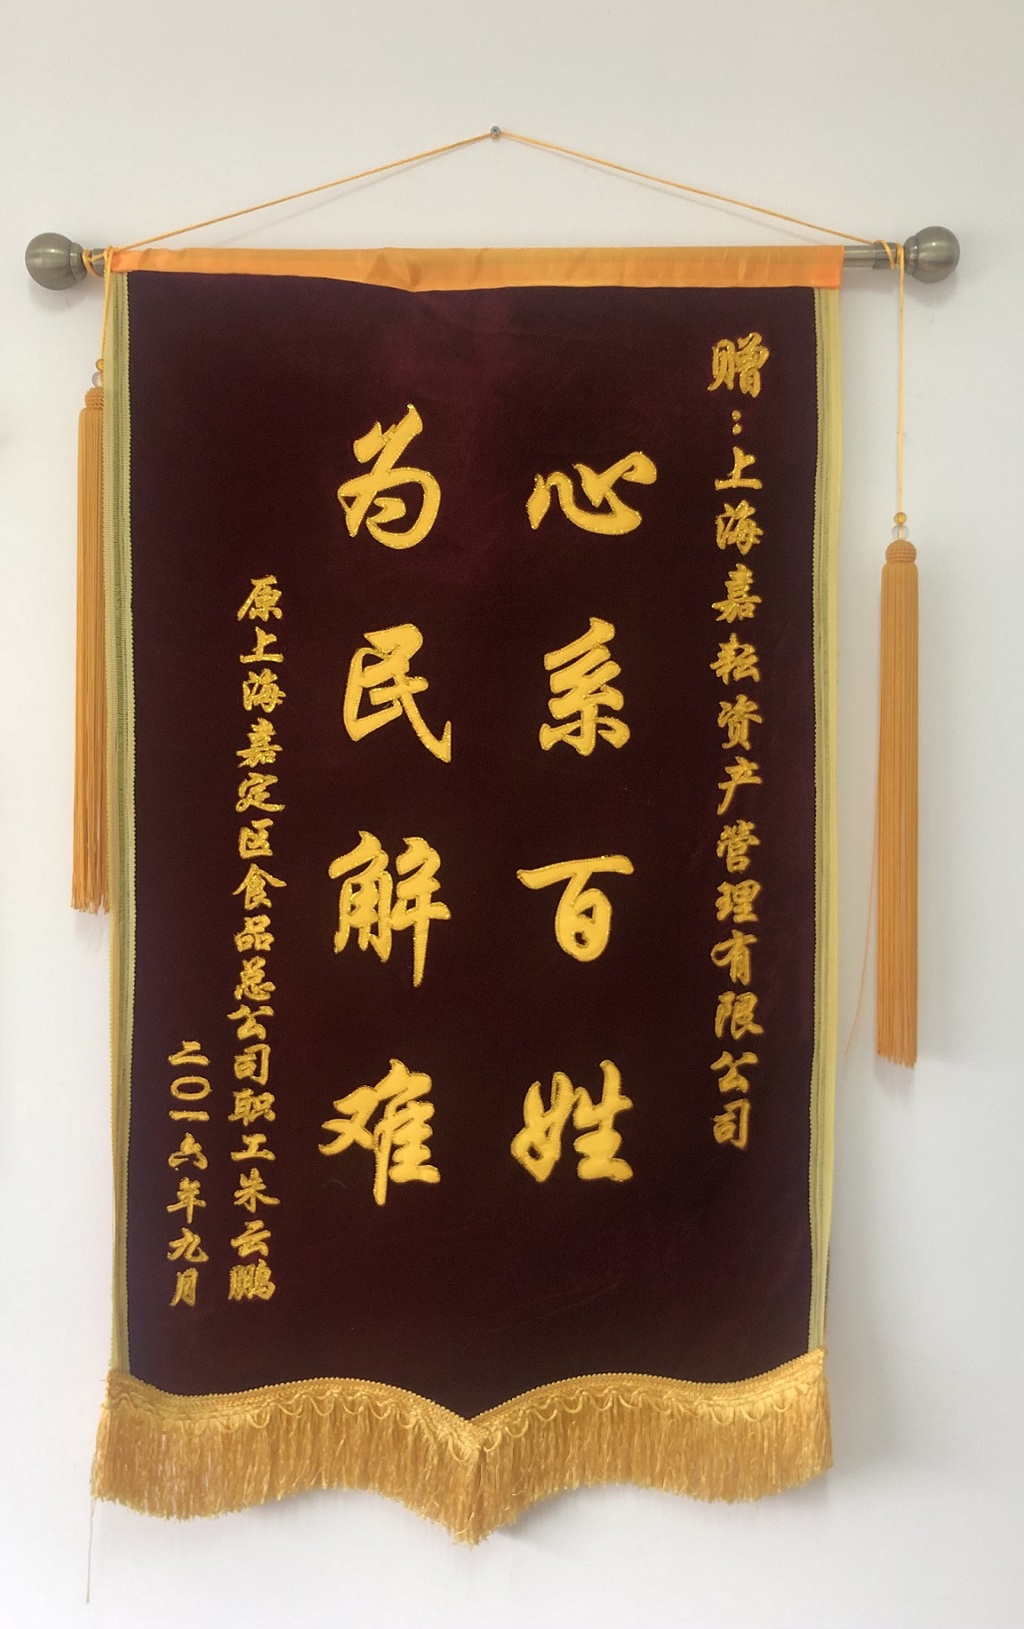 赠：上海嘉耘资产管理有限公司
心系百姓
为民解难
原上海嘉定区食品总公司职工朱云鹏
二〇一六年九月